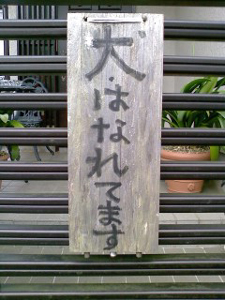 犬・はなれてます